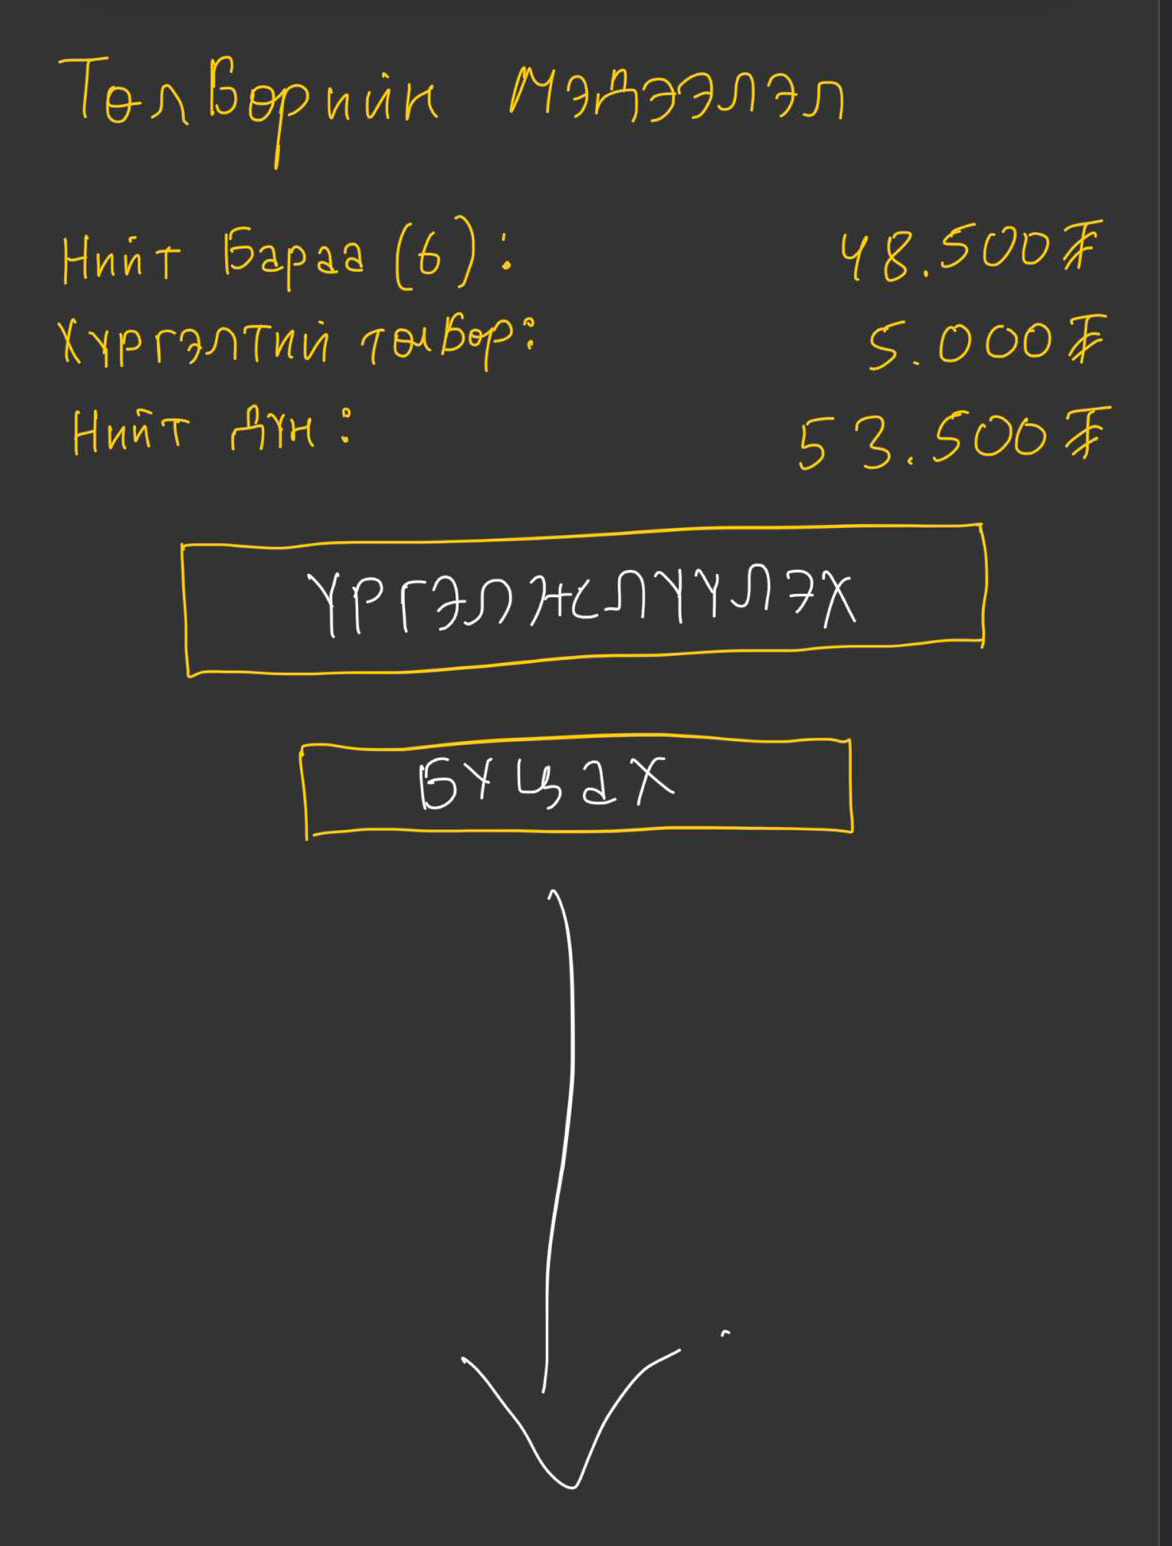 Төлбөрийн мэдээлэл
Нийт Бараа (6): 48.500₮
Хүргэлтий төлбөр: 5.000₮
Нийт дүн: 53.500₮
ҮРГЭЛЖЛҮҮЛЭХ
БҮЦАХ